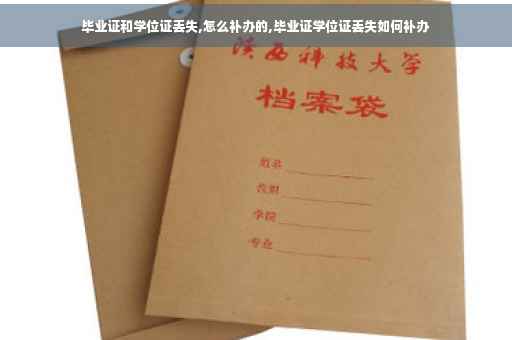 毕业证和学位证丢失,怎么补办的,毕业证学位证丢失如何补办
陕西科技大学
档案袋
姓名
学院
专业